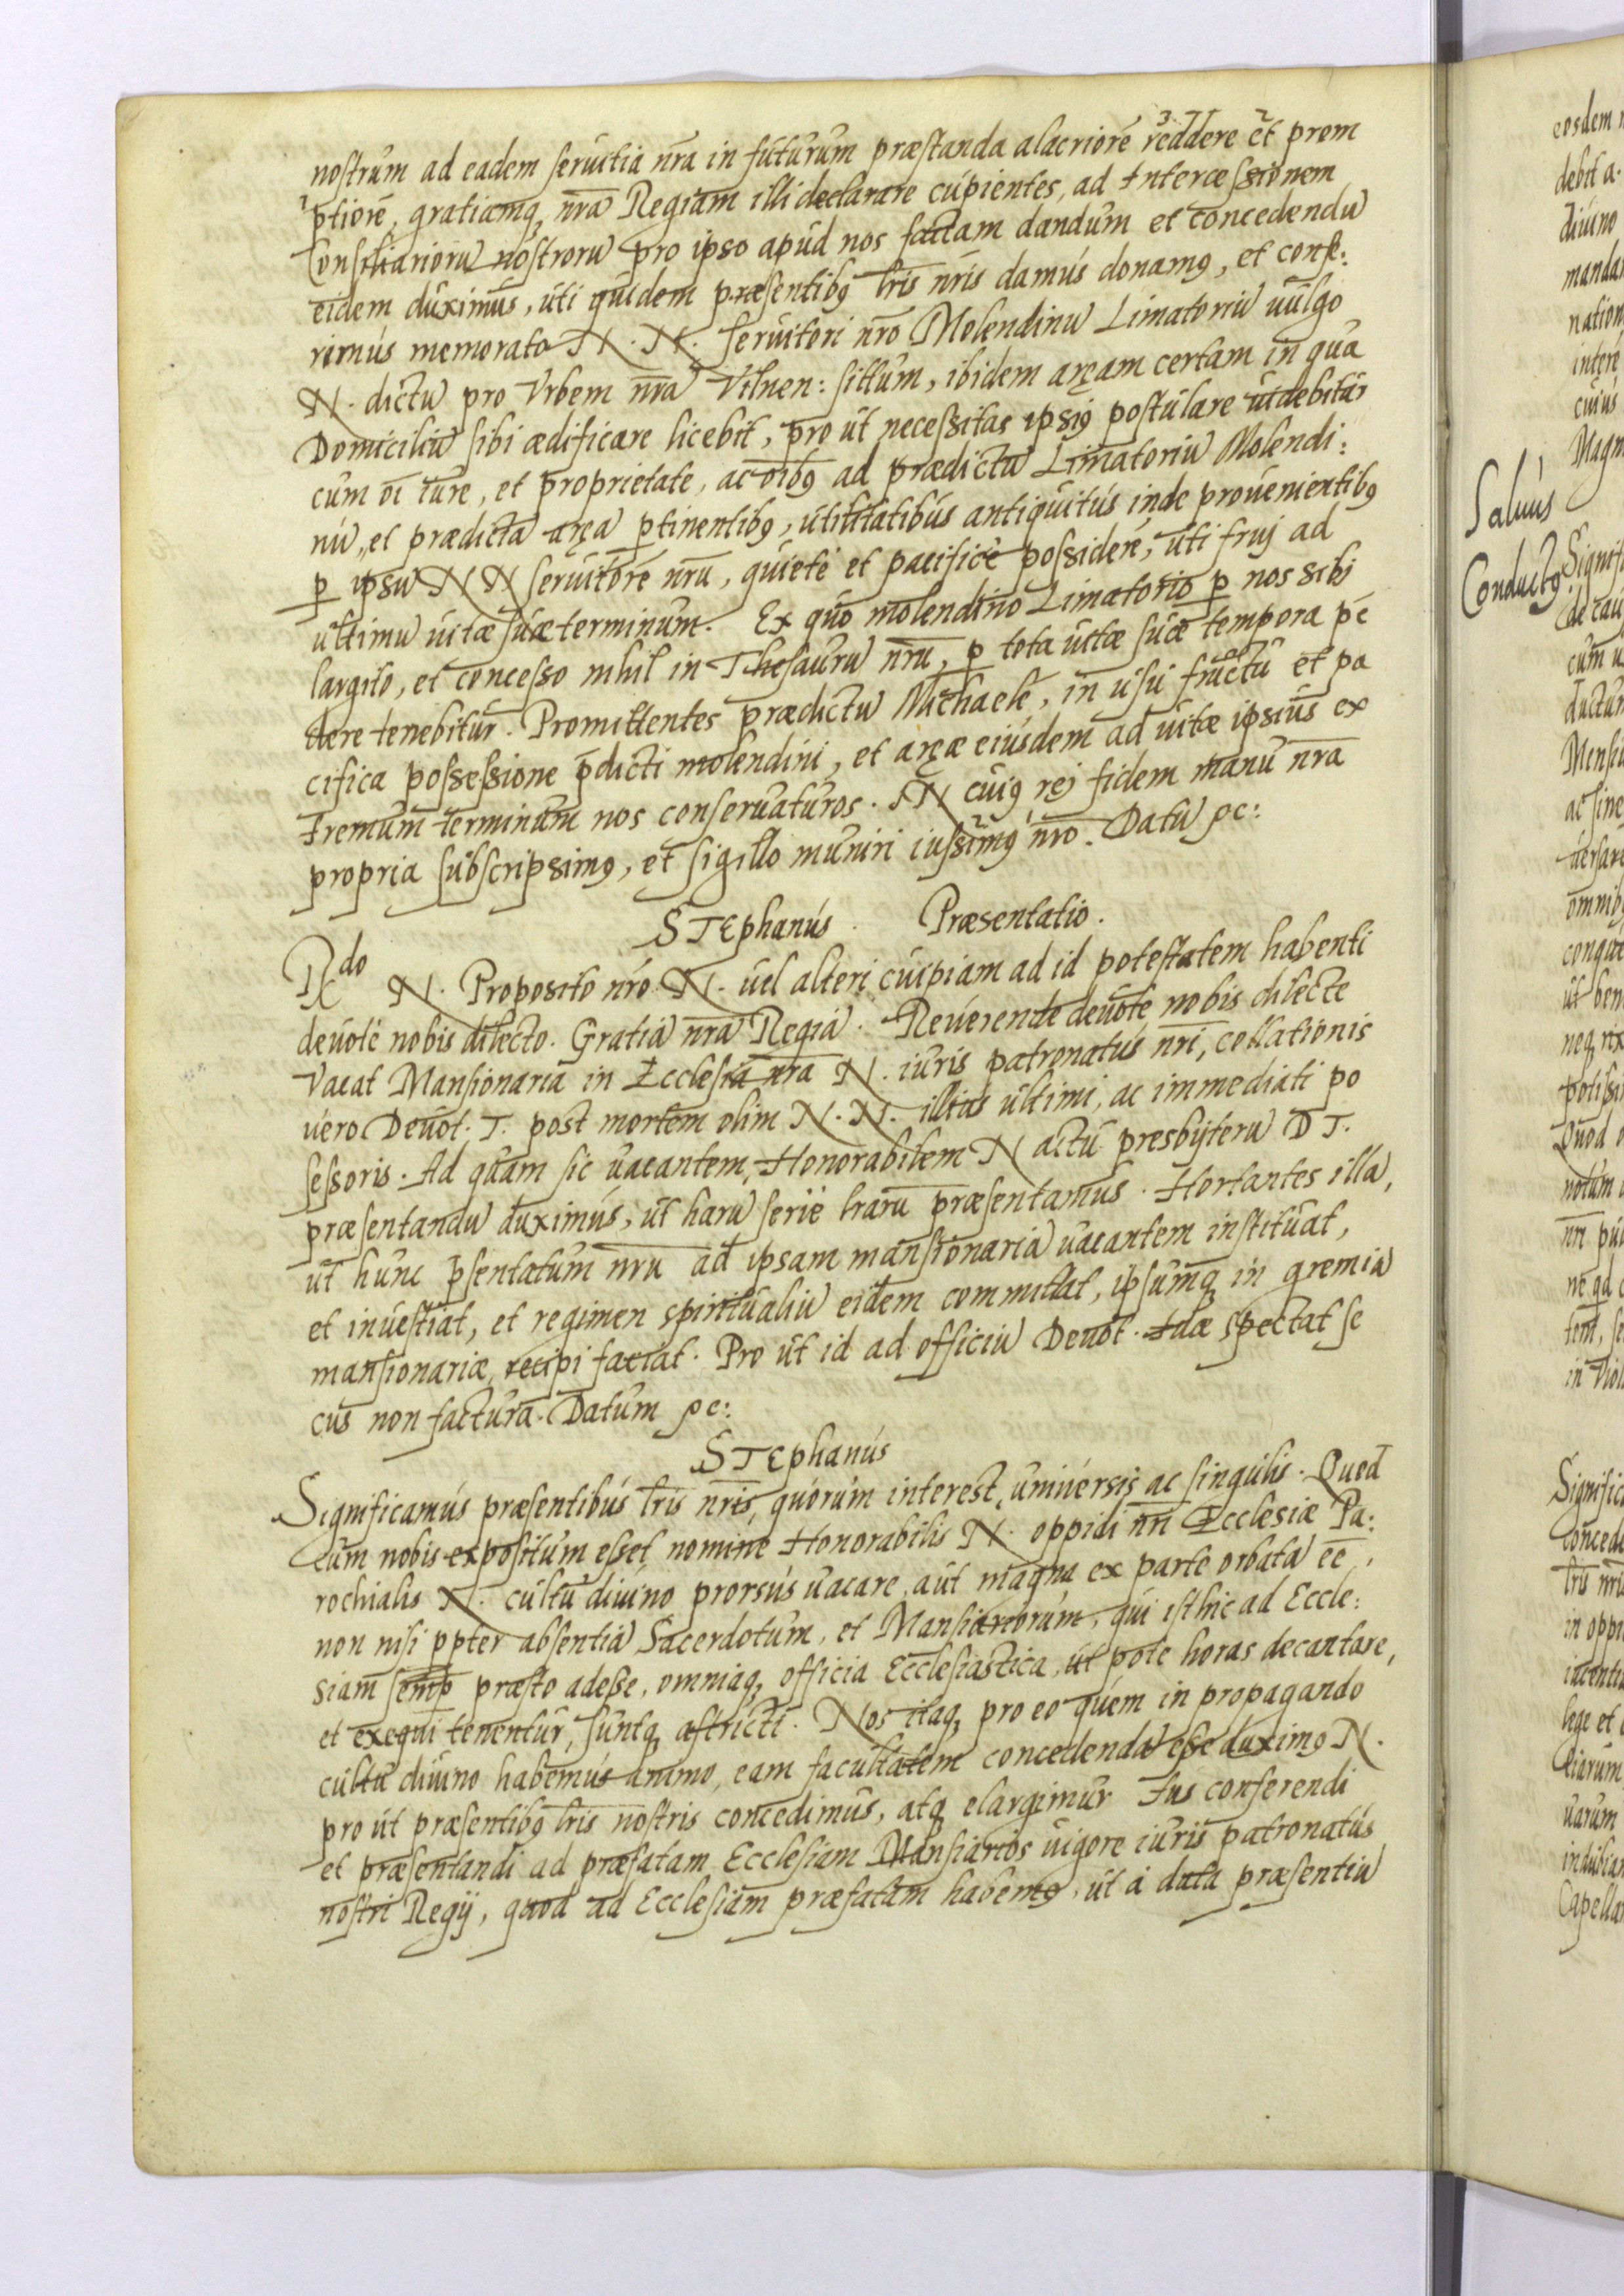 nostrum ad eadem seruitia nr̃a in futurum præstanda alacriorẽ reddere et prom
ptiorẽ, gratiamq₃ nr̃a Regiam illi declarare cupientes, ad Intercessionem
Consiliarioru nostroru pro ipso apud nos factam dandum et concedendu
eidem duximus, uti quidem præsentibꝰ lr̃is nr̃is damus donamꝰ, et confe:
rimus memorato N. N. seruitori nr̃o Molendinu Limatoriu uulgo
N. dictu pro Vrbem nr̃a Vilnen: situm, ibidem aręam certam in qua
Domiciliu sibi ædificare licebit, pro ut necessitas ipsiꝰ postulare uidebitur
cum oĩ iure, et proprietate, ac oĩbꝰ ad prædictu Limatoriu Molendi:
nu, et prædicta aręa ꝑtinentibꝰ, utilitatibus antiquitus inde prouenientibꝰ
ꝑ ipsu N N seruitorẽ nr̃u, quietè et pacificè possiderẽ, uti frui ad
ultimu uitæ suæ terminum. Ex quo molendino Limatorio ꝑ nos sibi
largito, et concesso nihil in Thesauru nr̃u, ꝑ tota uitæ suæ tempora pẽ
dere tenebitur. Promittentes prædictu Michaelẽ, in usu fructu et pa
cifica possessione p̃dicti molendini, et aręæ eiusdem ad uitæ ipsius ex
tremum terminum nos conseruaturos. IN cuiꝰ rei fidem manu nr̃a
propria subscripsimꝰ, et sigillo muniri iussimꝰ nr̃o. Datu &c:
STEphanus. Præsentatio.
Rdo N. Preposito nr̃o N. uel alteri cuipiam ad id potestatem habenti
deuotè nobis dilecto. Gratia nr̃a Regia. Reuerende deuotè nobis dilecte
Vacat Mansionaria in Ecclesia nr̃a N. iuris patronatus nr̃i, collationis
uero Deuot. T. post mortem olim N. N. illius ultimi, ac immediati po
sessoris. Ad quam sic uacantem, Honorabilem N actu presbyteru D T.
præsentandu duximus, ut haru seriè lr̃aru præsentamus. Hortantes illa,
ut hunc p̃sentatum nr̃u ad ipsam mansionaria uacantem instituat,
et inuestiat, et regimen spiritualiu eidem committat, ipsumq₃ in gremia
mansionariæ recipi faciat. Pro ut id ad officiu Deuot. Iuæ spectat se
cus non factura. Datum &c:
STEphanus
Significamus præsentibus lr̃is nr̃is, quorum interest, uniuersis ac singulis. Quod
cum nobis expositum esset nomine Honorabilis N. oppidi nr̃i Ecclesiæ Pa:
rochialis N. cultu diuino prorsus uacare, aut magna ex parte orbata eẽ,
non nisi ꝓpter absentia Sacerdotum, et Mansiariorum, qui isthic ad Eccle:
siam semꝑ præsto adesse, omniaq₃ officia Ecclesiastica, ut pote horas decantare,
et exequi tenentur, suntq₃ astricti. Nos itaq₃ pro eo quem in propagando
cultu diuino habemus animo, eam facultatem concedenda esse duximꝰ N.
pro ut præsentibꝰ lr̃is nostris concedimus, atq₃ elargimur Ius conferendi
et præsentandi ad præfatam Ecclesiam Mansiarios uigore iuris patronatus
nostri Regij, quod ad Ecclesiam præfatam habemꝰ, ut à data præsentiu
Saluus
Conductꝰ.